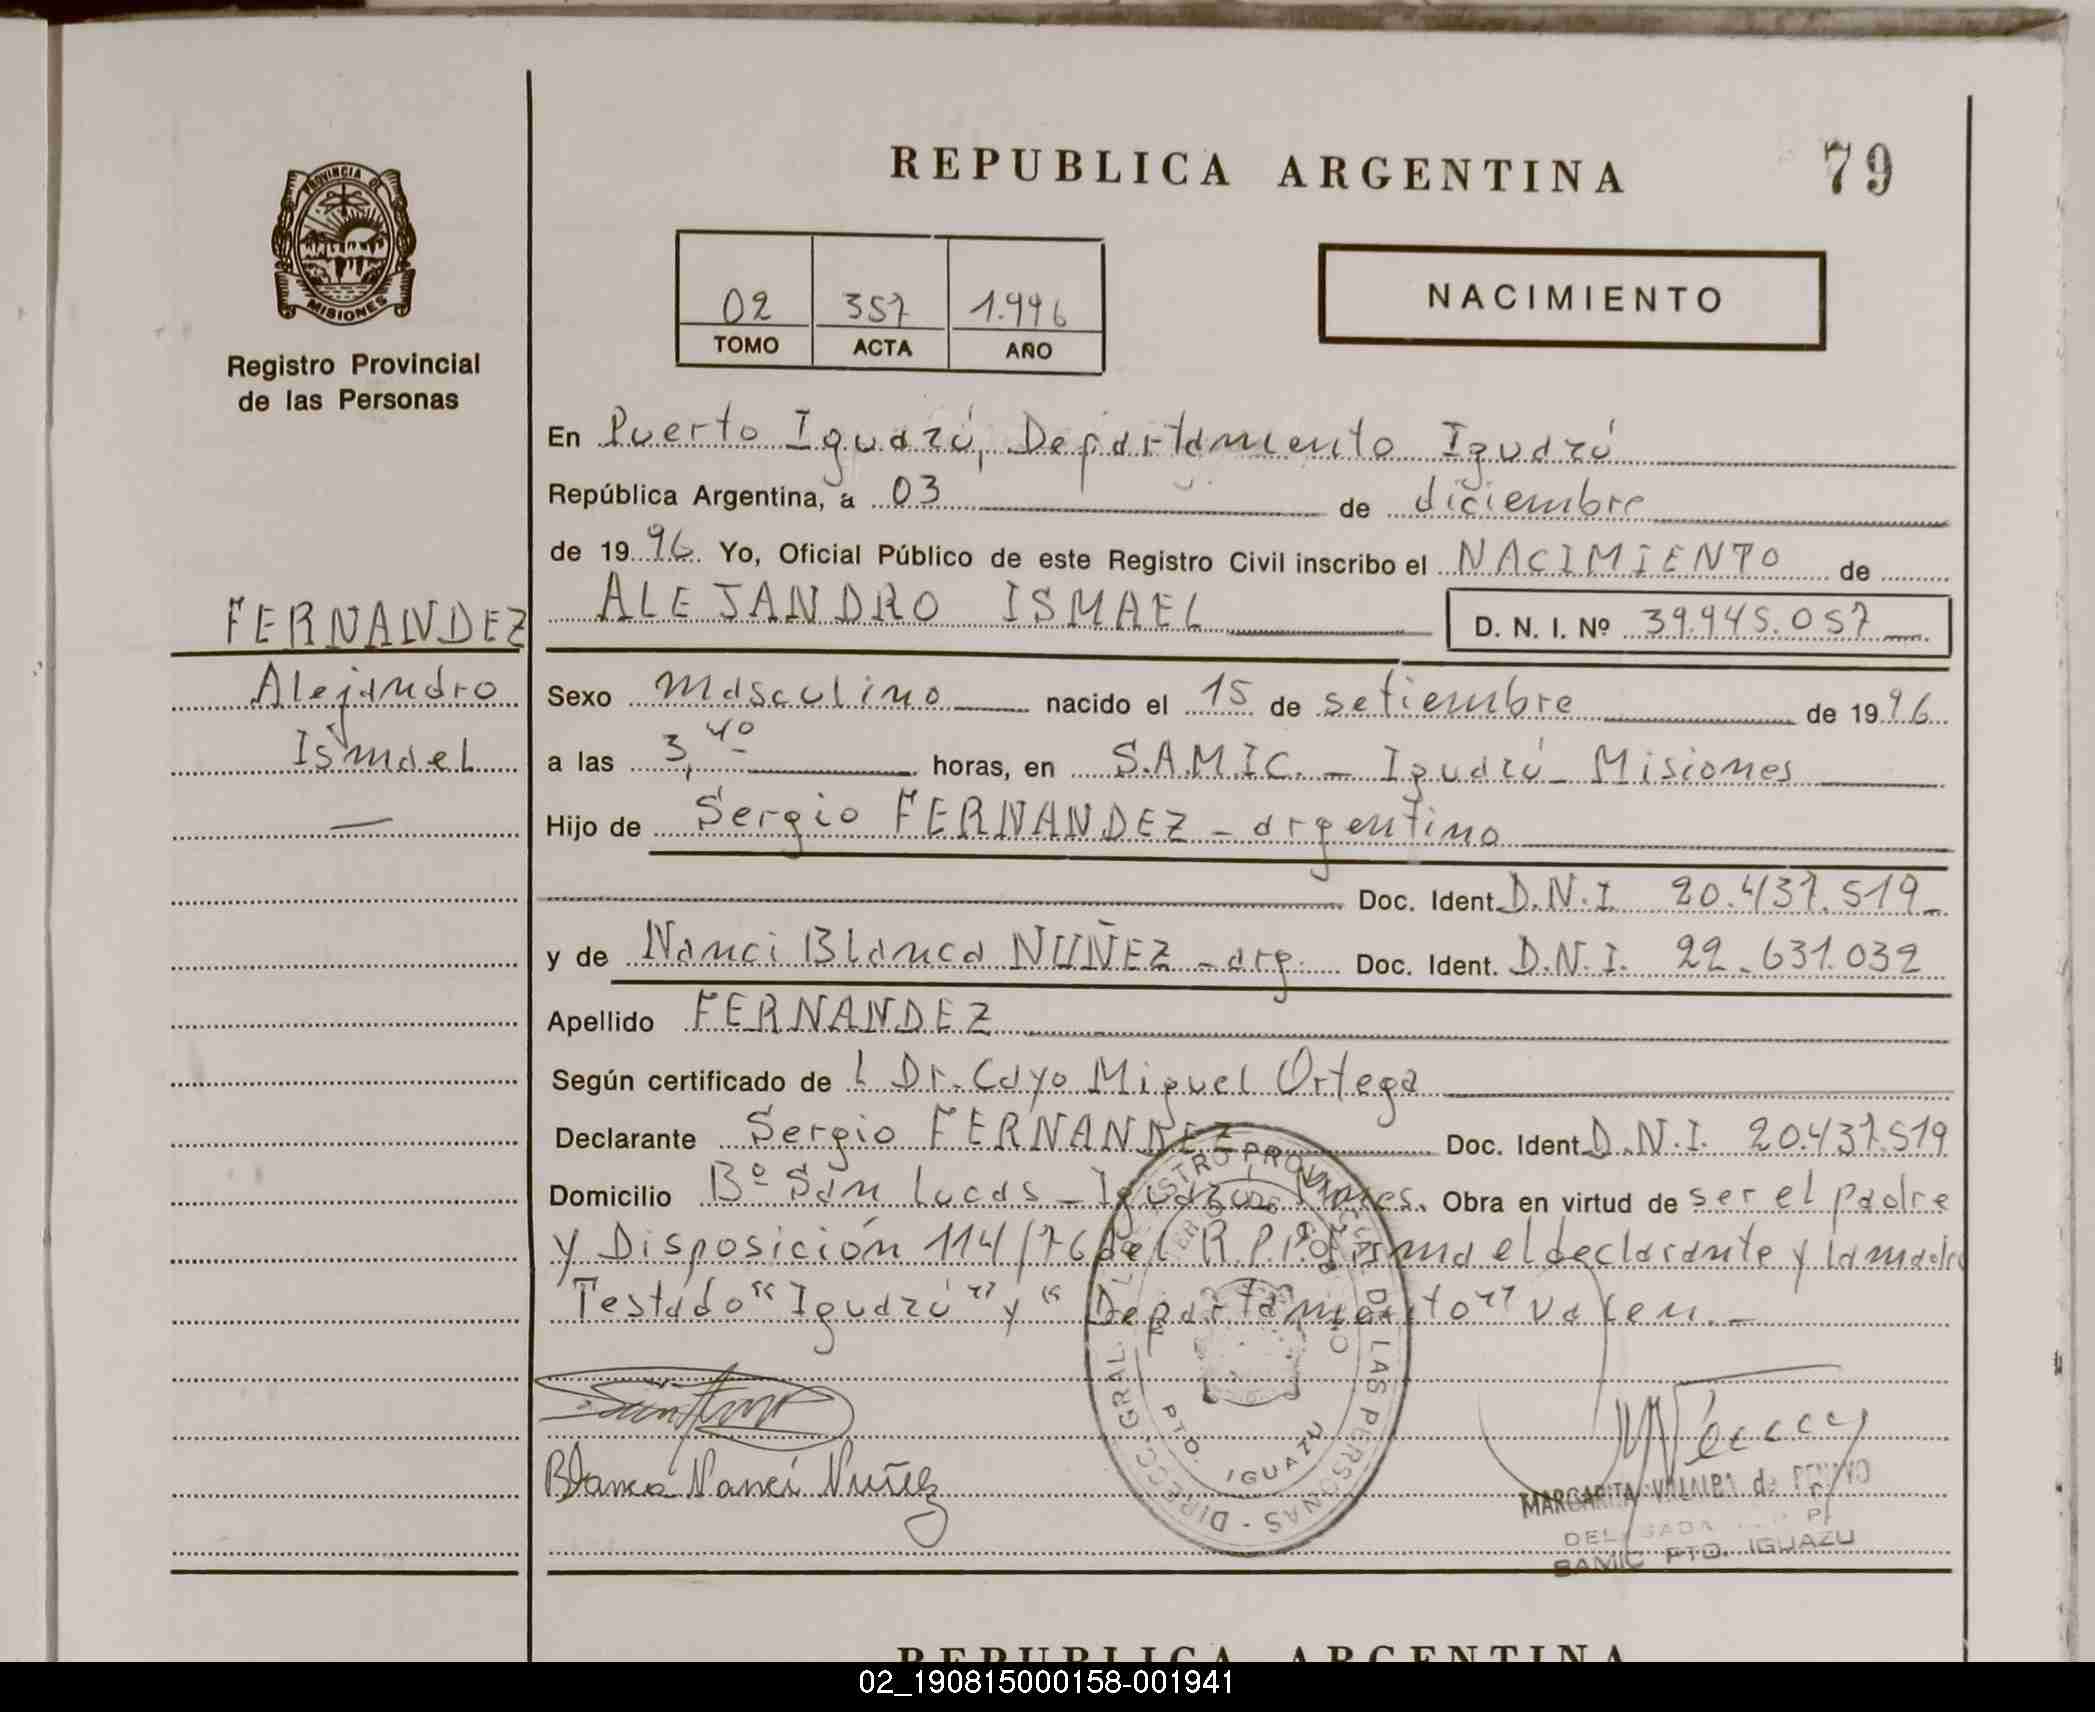 REPUBLICA ARGENTINA
79
PROVINCIA DE
MISIONES
Registro Provincial
de las Personas
02 357 1.996
TOMO ACTA AÑO
NACIMIENTO
En Puerto Iguazú, Departamento Iguazú
República Argentina, a 03 de diciembre
de 1996 Yo, Oficial Público de este Registro Civil inscribo el NACIMIENTO de
ALEJANDRO ISMAEL D. N. I. Nº 39.945.057
FERNANDEZ
Alejandro
Ismael
Sexo masculino nacido el 15 de setiembre de 1996
a las 3,40 horas, en S.A.M.I.C. - Iguazú - Misiones
Hijo de Sergio FERNANDEZ - argentino
Doc. Ident. D.N.I. 20.437.519
y de Nanci Blanca NUÑEZ - arg. Doc. Ident. D.N.I. 22.631.032
Apellido FERNANDEZ
Según certificado de l Dr. Cayo Miguel Ortega
Declarante Sergio FERNANDEZ Doc. Ident. D.N.I. 20.437.519
Domicilio Bº San Lucas - Iguazú Mnes. Obra en virtud de ser el padre
y Disposición 114/76 del R.P.P. firma el declarante y la madre
Testado "Iguazú" y "Departamento" valen.-
Blanca Nanci Nuñez
DIRECC. GRAL. DEL REGISTRO PROVINCIAL DE LAS PERSONAS
PTO. IGUAZU
MARGARITA VILLALBA de
DELEGADA
SAMIC PTO. IGUAZU
REPUBLICA ARGENTINA
02_190815000158-001941